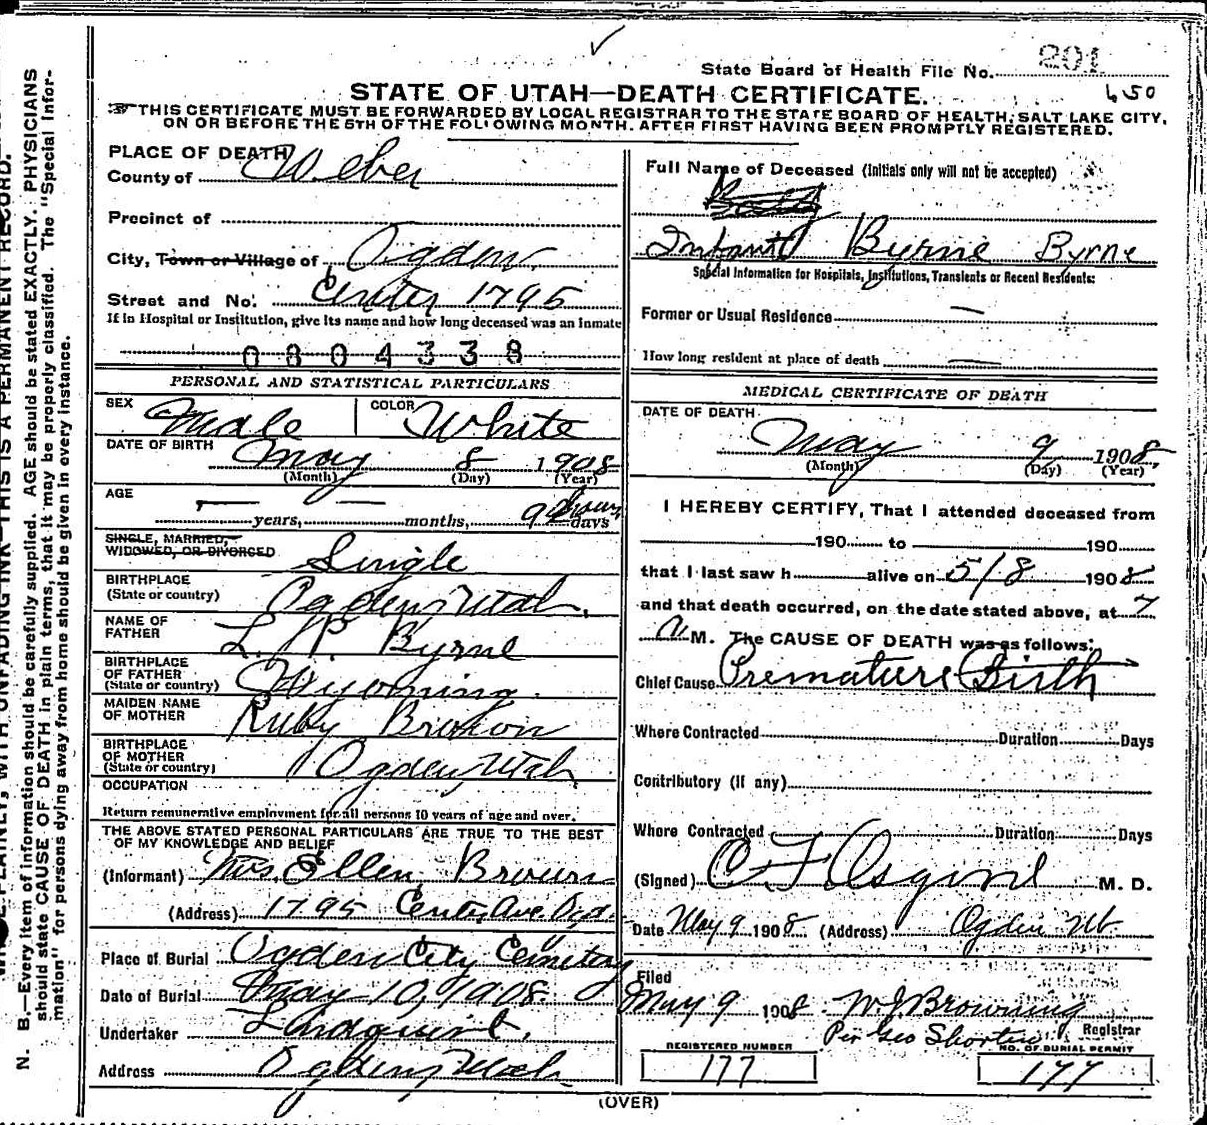 State Board of Health File No. 201
450
STATE OF UTAH—DEATH CERTIFICATE.
THIS CERTIFICATE MUST BE FORWARDED BY LOCAL REGISTRAR TO THE STATE BOARD OF HEALTH, SALT LAKE CITY,
ON OR BEFORE THE 5TH OF THE FOLLOWING MONTH. AFTER FIRST HAVING BEEN PROMPTLY REGISTERED.
PLACE OF DEATH
County of Weber
Precinct of
City, Town or Village of Ogden.
Street and No. Center 1795
If in Hospital or Institution, give its name and how long deceased was an Inmate
0 8 0 4 3 3 8
PERSONAL AND STATISTICAL PARTICULARS
SEX Male COLOR White
DATE OF BIRTH May 8 1908
(Month) (Day) (Year)
AGE
years, months, 9 hours days
SINGLE, MARRIED,
WIDOWED, OR DIVORCED Single
BIRTHPLACE
(State or country) Ogden, Utah.
NAME OF
FATHER L. P. Byrne
BIRTHPLACE
OF FATHER
(State or country) Wyoming.
MAIDEN NAME
OF MOTHER Ruby Brown
BIRTHPLACE
OF MOTHER
(State or country) Ogden, Utah
OCCUPATION
Return remunerative employment for all persons 10 years of age and over.
THE ABOVE STATED PERSONAL PARTICULARS ARE TRUE TO THE BEST
OF MY KNOWLEDGE AND BELIEF
(Informant) Mrs. Ellen Brown
(Address) 1795 Center Ave. Ogd.
Place of Burial Ogden City Cemetery
Date of Burial May 10, 1908.
Undertaker Lindquist.
Address Ogden, Utah
Full Name of Deceased (Initials only will not be accepted)
Infant Byrne Byrne
Special Information for Hospitals, Institutions, Transients or Recent Residents:
Former or Usual Residence —
How long resident at place of death —
MEDICAL CERTIFICATE OF DEATH
DATE OF DEATH
May 9 1908
(Month) (Day) (Year)
I HEREBY CERTIFY, That I attended deceased from
190 to 190
that I last saw h alive on 5/8 1908
and that death occurred, on the date stated above, at 7
A M. The CAUSE OF DEATH was as follows:
Chief Cause Premature Birth
Where Contracted Duration Days
Contributory (if any)
Where Contracted Duration Days
(Signed) C F Osgood M. D.
Date May 9 1908 (Address) Ogden Ut.
Filed
May 9 1908 W J Browning
Per Geo Shorten Registrar
REGISTERED NUMBER NO. OF BURIAL PERMIT
177 177
(OVER)
THIS IS A PERMANENT RECORD.
N. B.—Every item of information should be carefully supplied. AGE should be stated EXACTLY. PHYSICIANS
should state CAUSE OF DEATH in plain terms, that it may be properly classified. The "Special Infor-
mation" for persons dying away from home should be given in every instance.